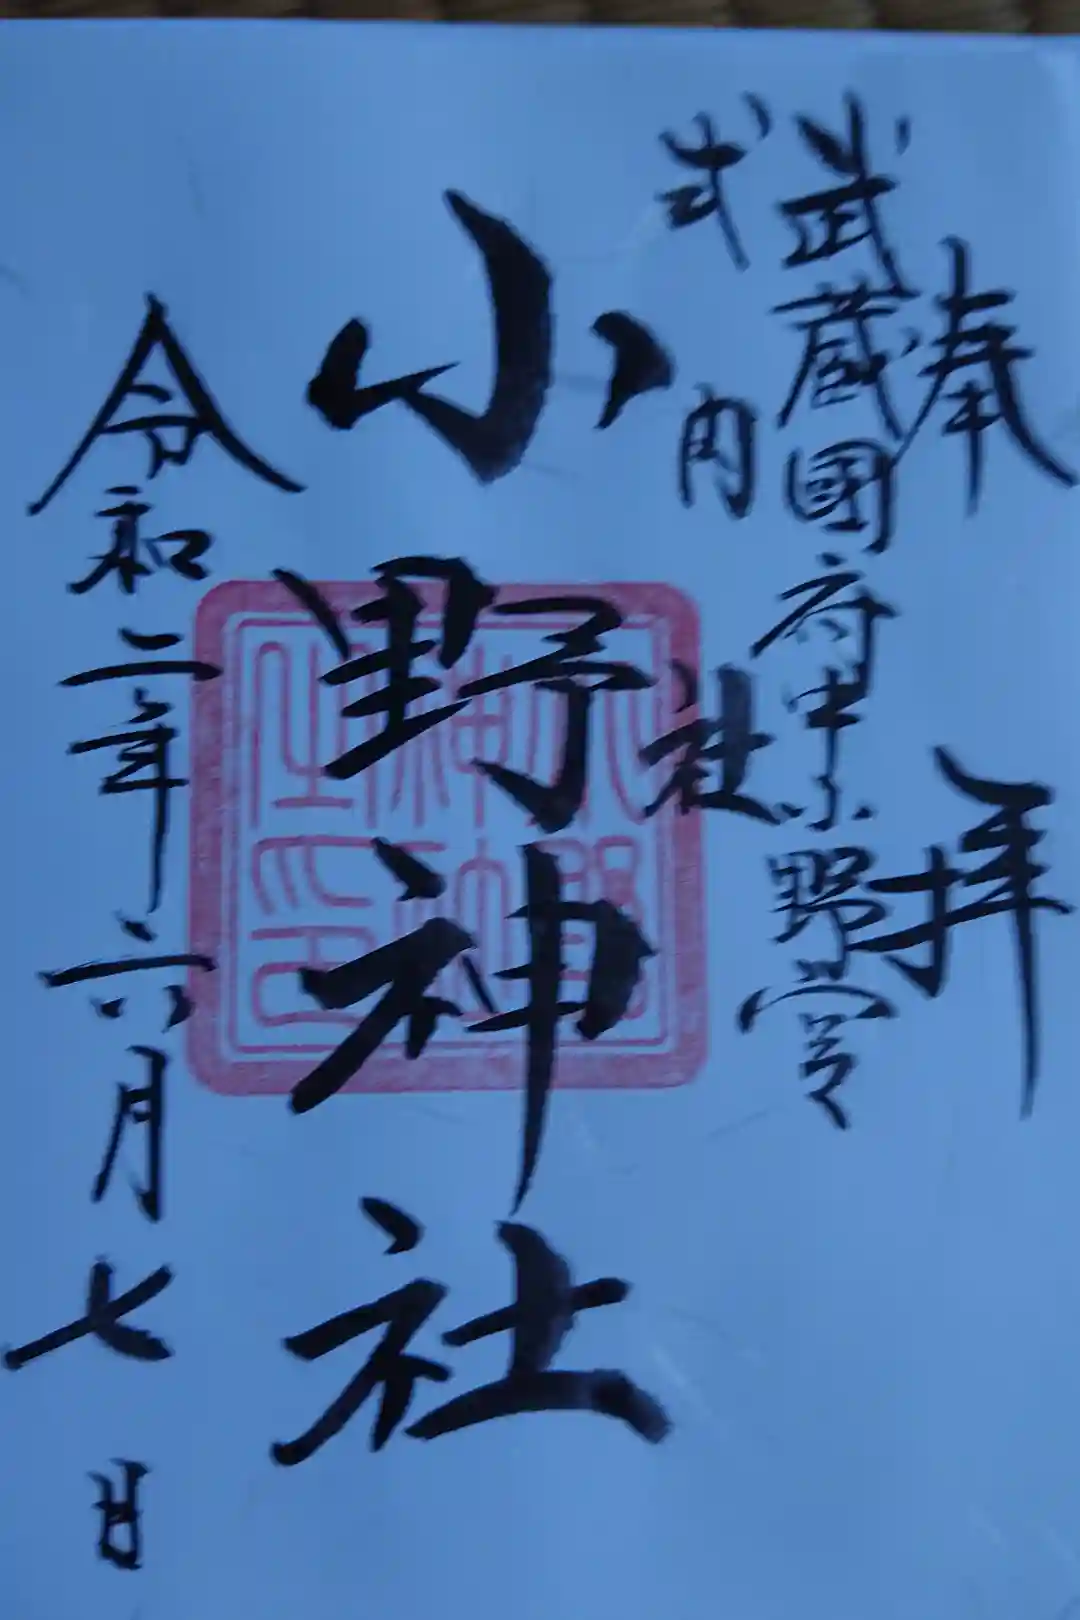 奉拝
武蔵國府中小野宮
式内社
小野神社
小野
神社
之印
令和二年六月七日